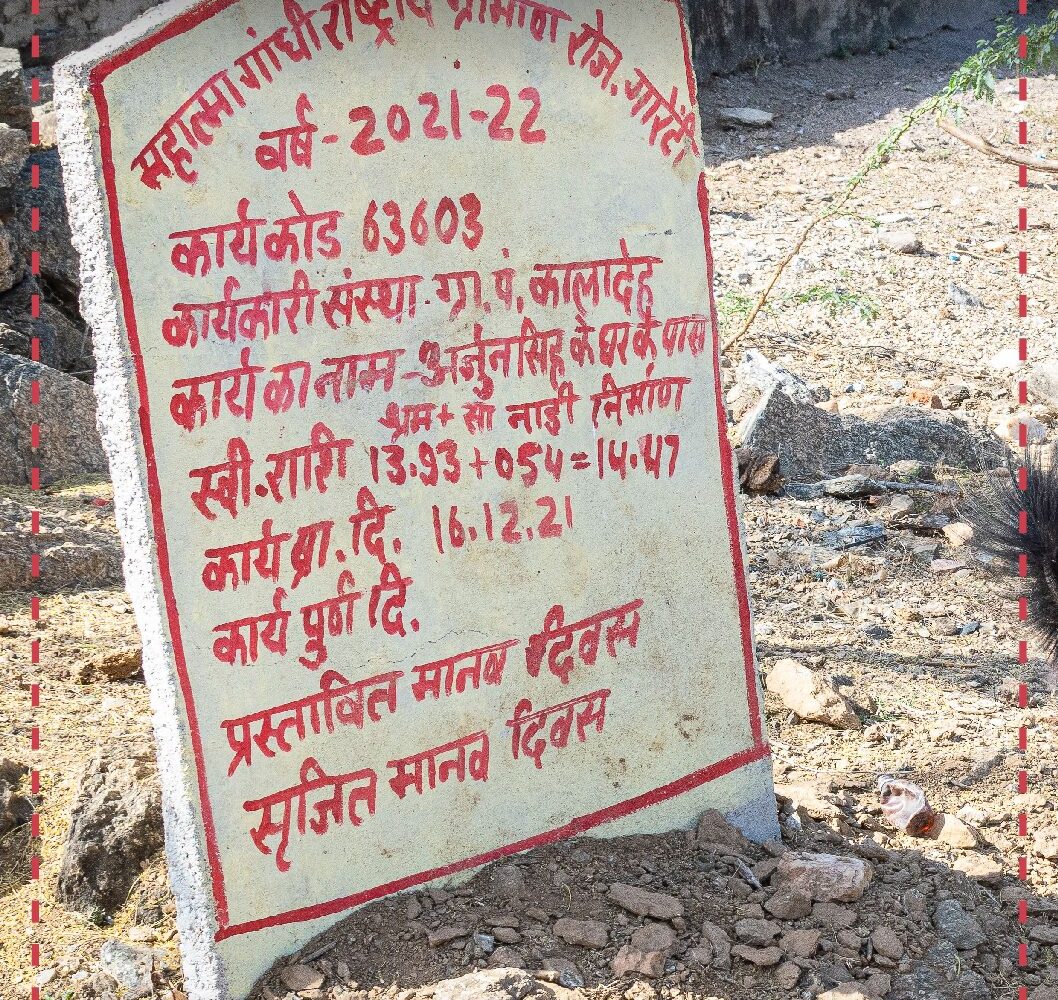 महात्मा गांधी राष्ट्रीय ग्रामीण रोज. गारंटी
वर्ष - 2021-22
कार्य कोड 63603
कार्यकारी संस्था - ग्रा. पं. कालादेह
कार्य का नाम - अर्जुनसिह के घर के पास
श्रम + सा नाडी निर्माण
स्वी. राशि 13.93 + 054 = 14.47
कार्य प्रा. दि. 16.12.21
कार्य पुर्ण दि.
प्रस्तावित मानव दिवस
सृजित मानव दिवस